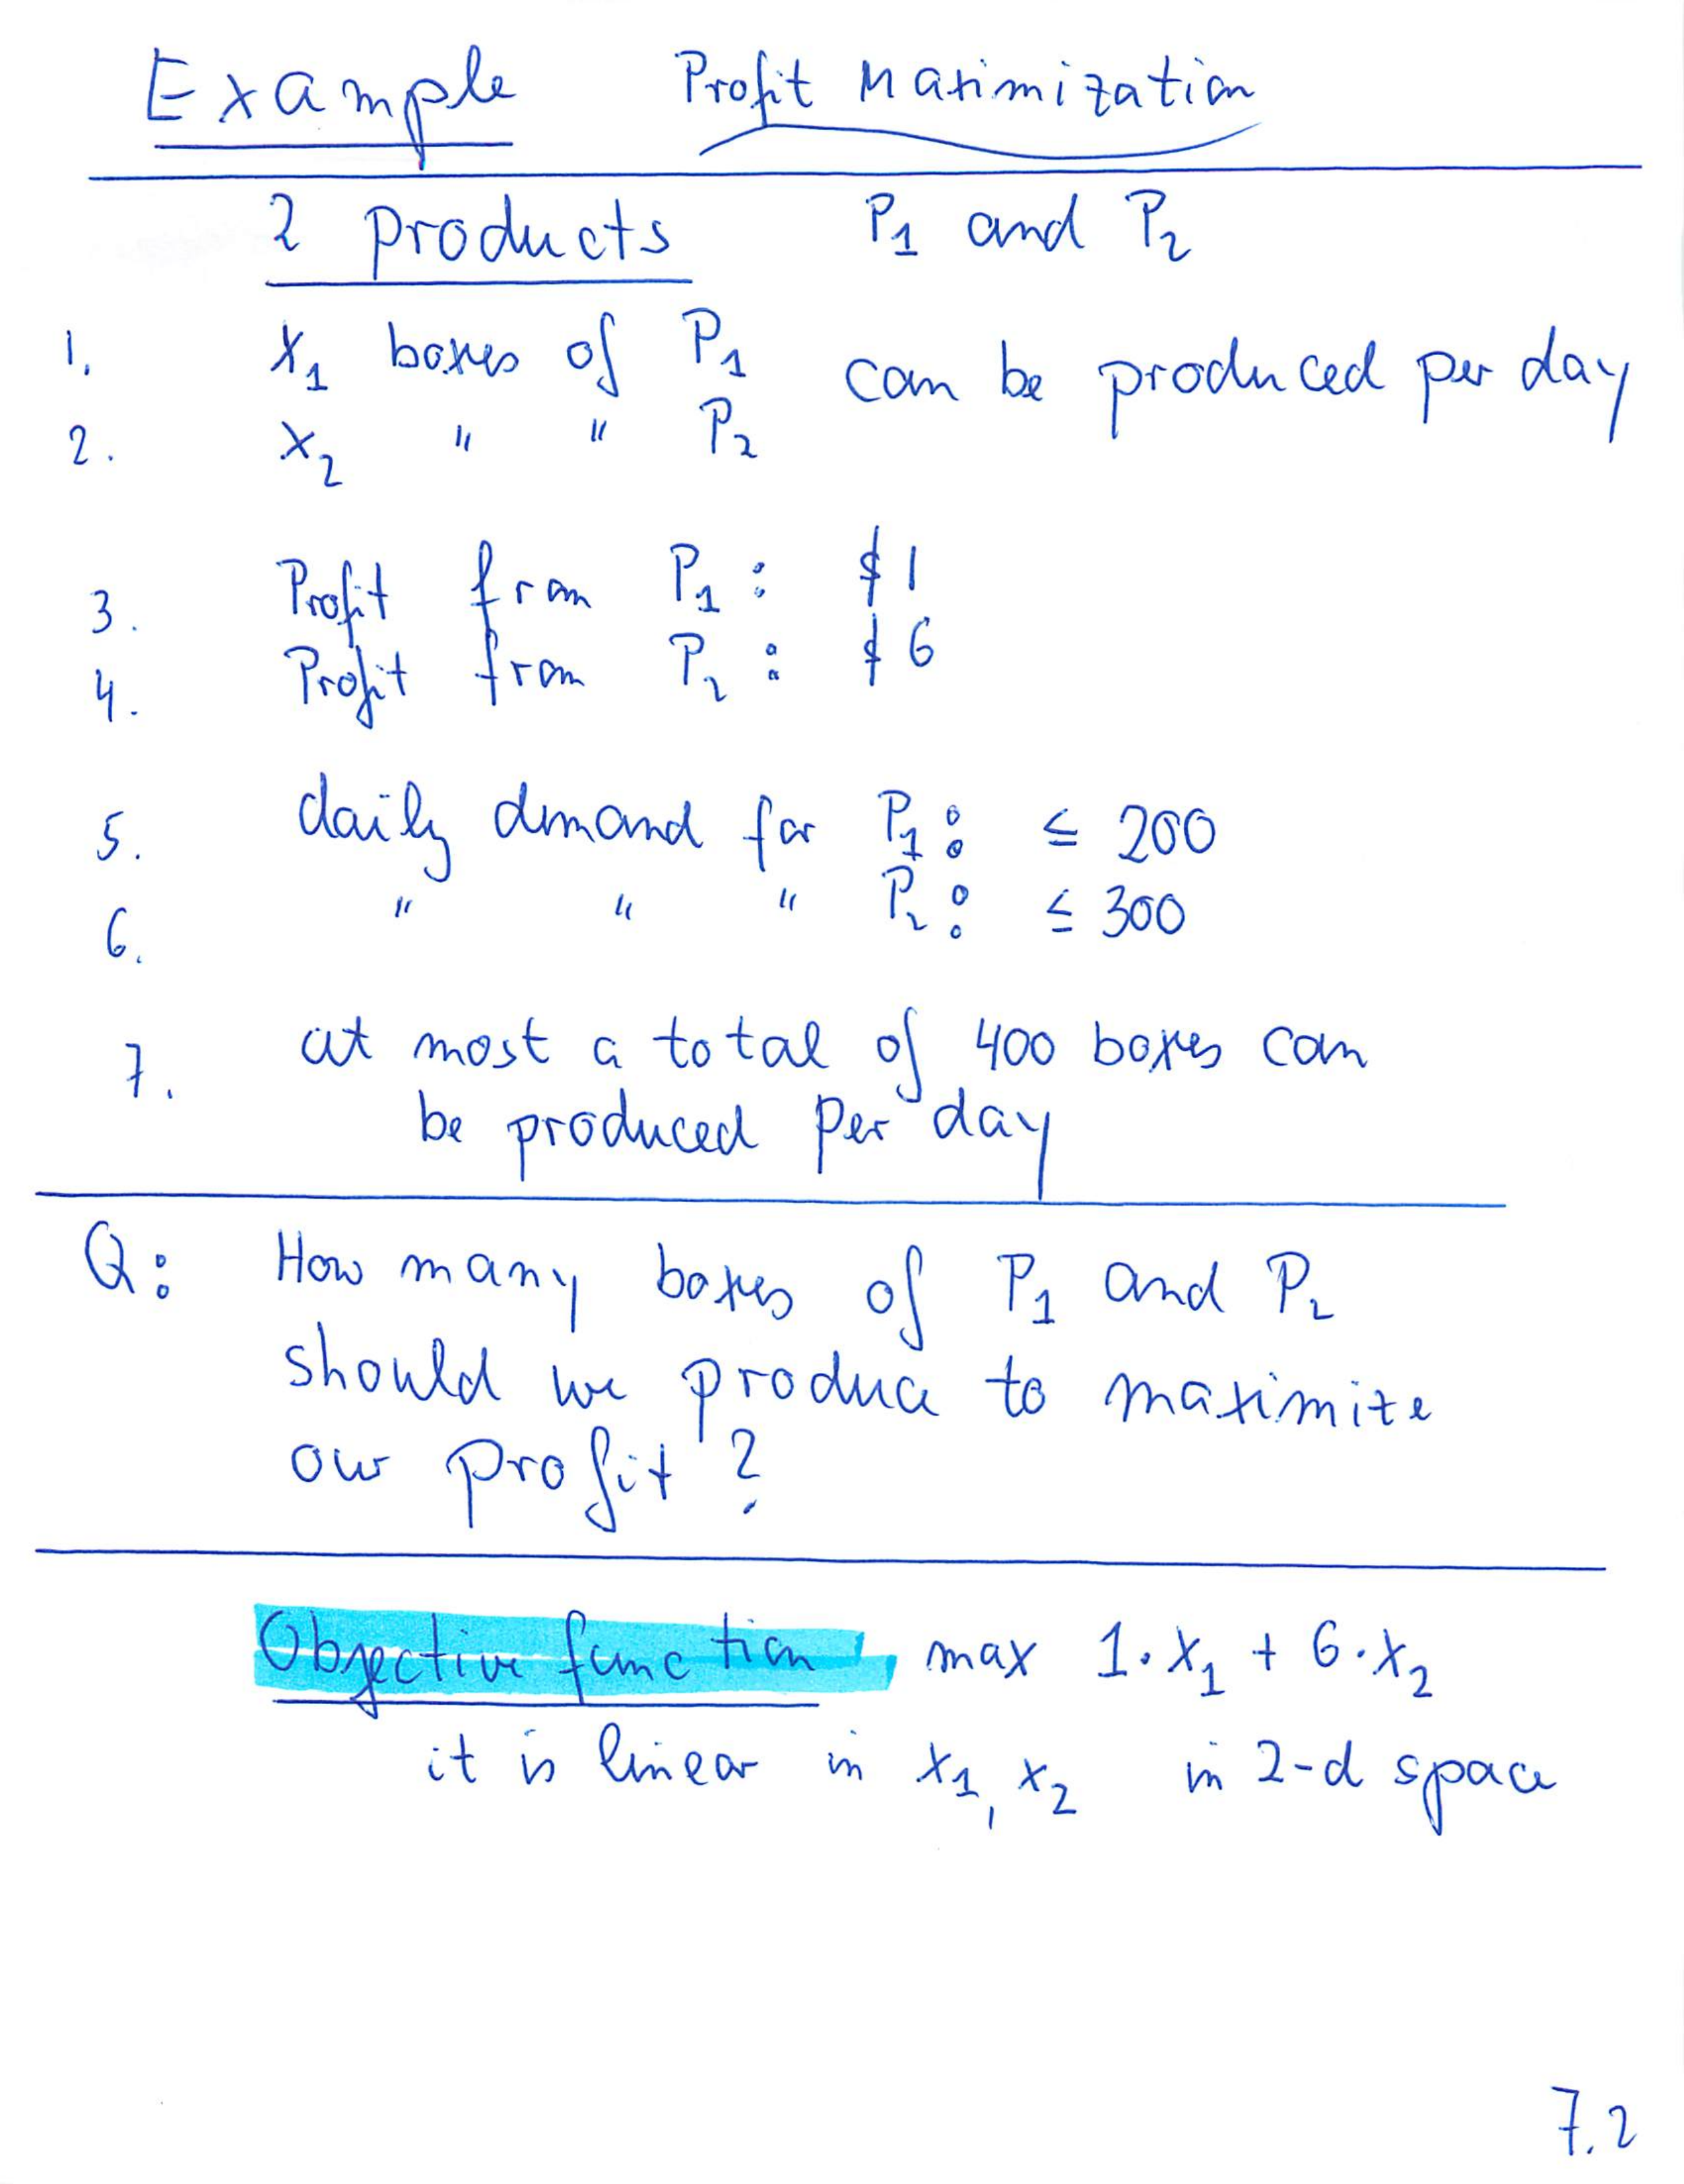 Example Profit Maximization
2 products P1 and P2
1. x1 boxes of P1 can be produced per day
2. x2 " " P2
3. Profit from P1: $1
4. Profit from P2: $6
5. daily demand for P1: ≤ 200
6. " " " P2: ≤ 300
7. at most a total of 400 boxes can
be produced per day
Q: How many boxes of P1 and P2
should we produce to maximize
our profit?
Objective function max 1·x1 + 6·x2
it is linear in x1, x2 in 2-d space
7.2